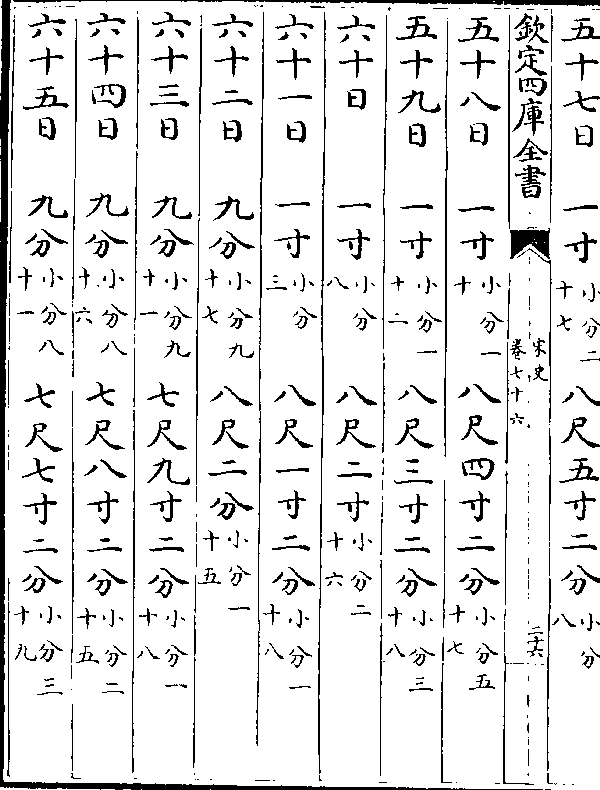 五十七日 一寸 小分二十七 八尺五寸二分 小分八
欽定四庫全書 宋史 卷七十六 二十六
五十八日 一寸 小分一十 八尺四寸二分 小分五十七
五十九日 一寸 小分一十二 八尺三寸二分 小分三十八
六十日 一寸 小分八 八尺二寸 小分二十六
六十一日 一寸 小分三 八尺一寸二分 小分一十八
六十二日 九分 小分九十七 八尺二分 小分一十五
六十三日 九分 小分九十一 七尺九寸二分 小分一十八
六十四日 九分 小分八十六 七尺八寸二分 小分二十五
六十五日 九分 小分八十一 七尺七寸二分 小分三十九